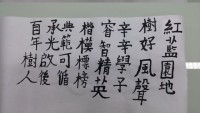 紅藍園地
樹好風聲
辛辛學子
睿智精英
楷模標榜
典範可循
承先啟後
百年樹人